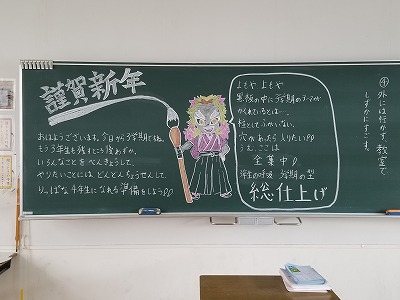 謹賀新年
おはようございます。今日から3学期ですね。
もう3年生も残すところ後わずか。
いろんなことをべんきょうして、
やりたいことには、どんどんちょうせんして、
りっぱな4年生になれる準備をしよう!!
よもや よもや
黒板の中に3学期のテーマが
かくれているとは…。
柱としてふがいない。
穴があったら入りたい!!
うむ、ここは
全集中!
3年生の呼吸 3学期の型
総仕上げ
④外には行かず、教室で
しずかにすごす。